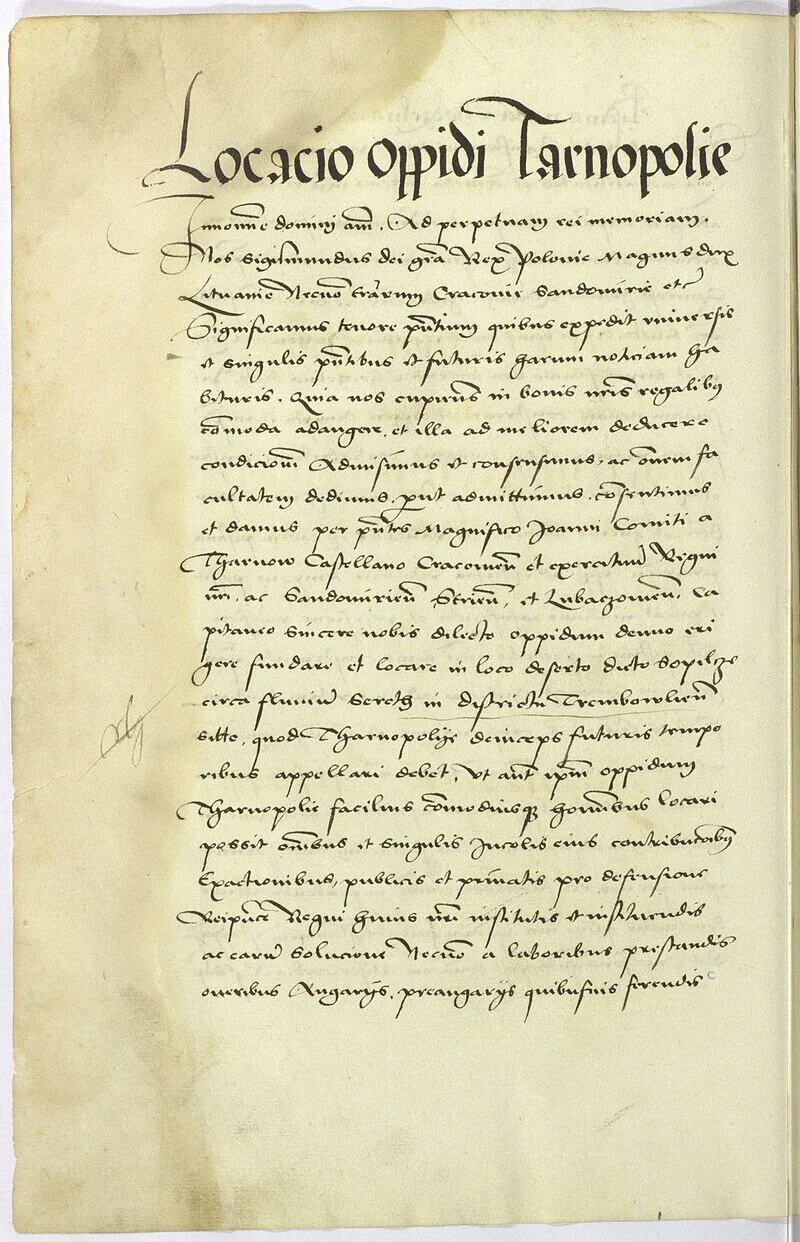 Locacio oppidi Tarnopolie
In noīe domini amē. Ad perpetuam rei memoriam.
Nos Sigismundus dei grā Rex Polonie Magnus dux
Lituanie Necnō terrarum Cracovie Sandomirie etc
Significamus tenore pñtium quibus expedit vniversis
et singulis pñtibus et futuris harum noticiam ha
bituris. Quia nos cupientes in bonis nris regalibus
cōmoda adaugere, et illa ad meliorem deducere
condicionē Admisimus et consensimus, ac omnem fa
cultatem dedimus, prout admittimus, cōsentimus
et damus per pñtes Magnifico Joanni Comiti a
Tharnow Castellano Cracovieñ et exercituū Regni
nri, ac Sandomirieñ Strieñ, et Lubaczovieñ, Ca
pitaneo sincere nobis dilecto oppidum denuo eri
gere fundare et locare in loco deserto dicto Sopilcze
circa fluviū Sereth in districtu Trembowlieñ
sitto, quod Tharnopolije deinceps futuris tempo
ribus appellari debet, Vt aūt ipm oppidum
Tharnopolie facilius cōmodiusque hominibus locari
possit omnibus et singulis Incolis eius contributionibus
Exactionibus, publicis et privatis pro defensione
Reipuce Regni huius nri institutis et instituendis
ac earū Solucione Necnō a laboribus prestandis
oneribus Angarijs, preangarijs quibusvis ferendis